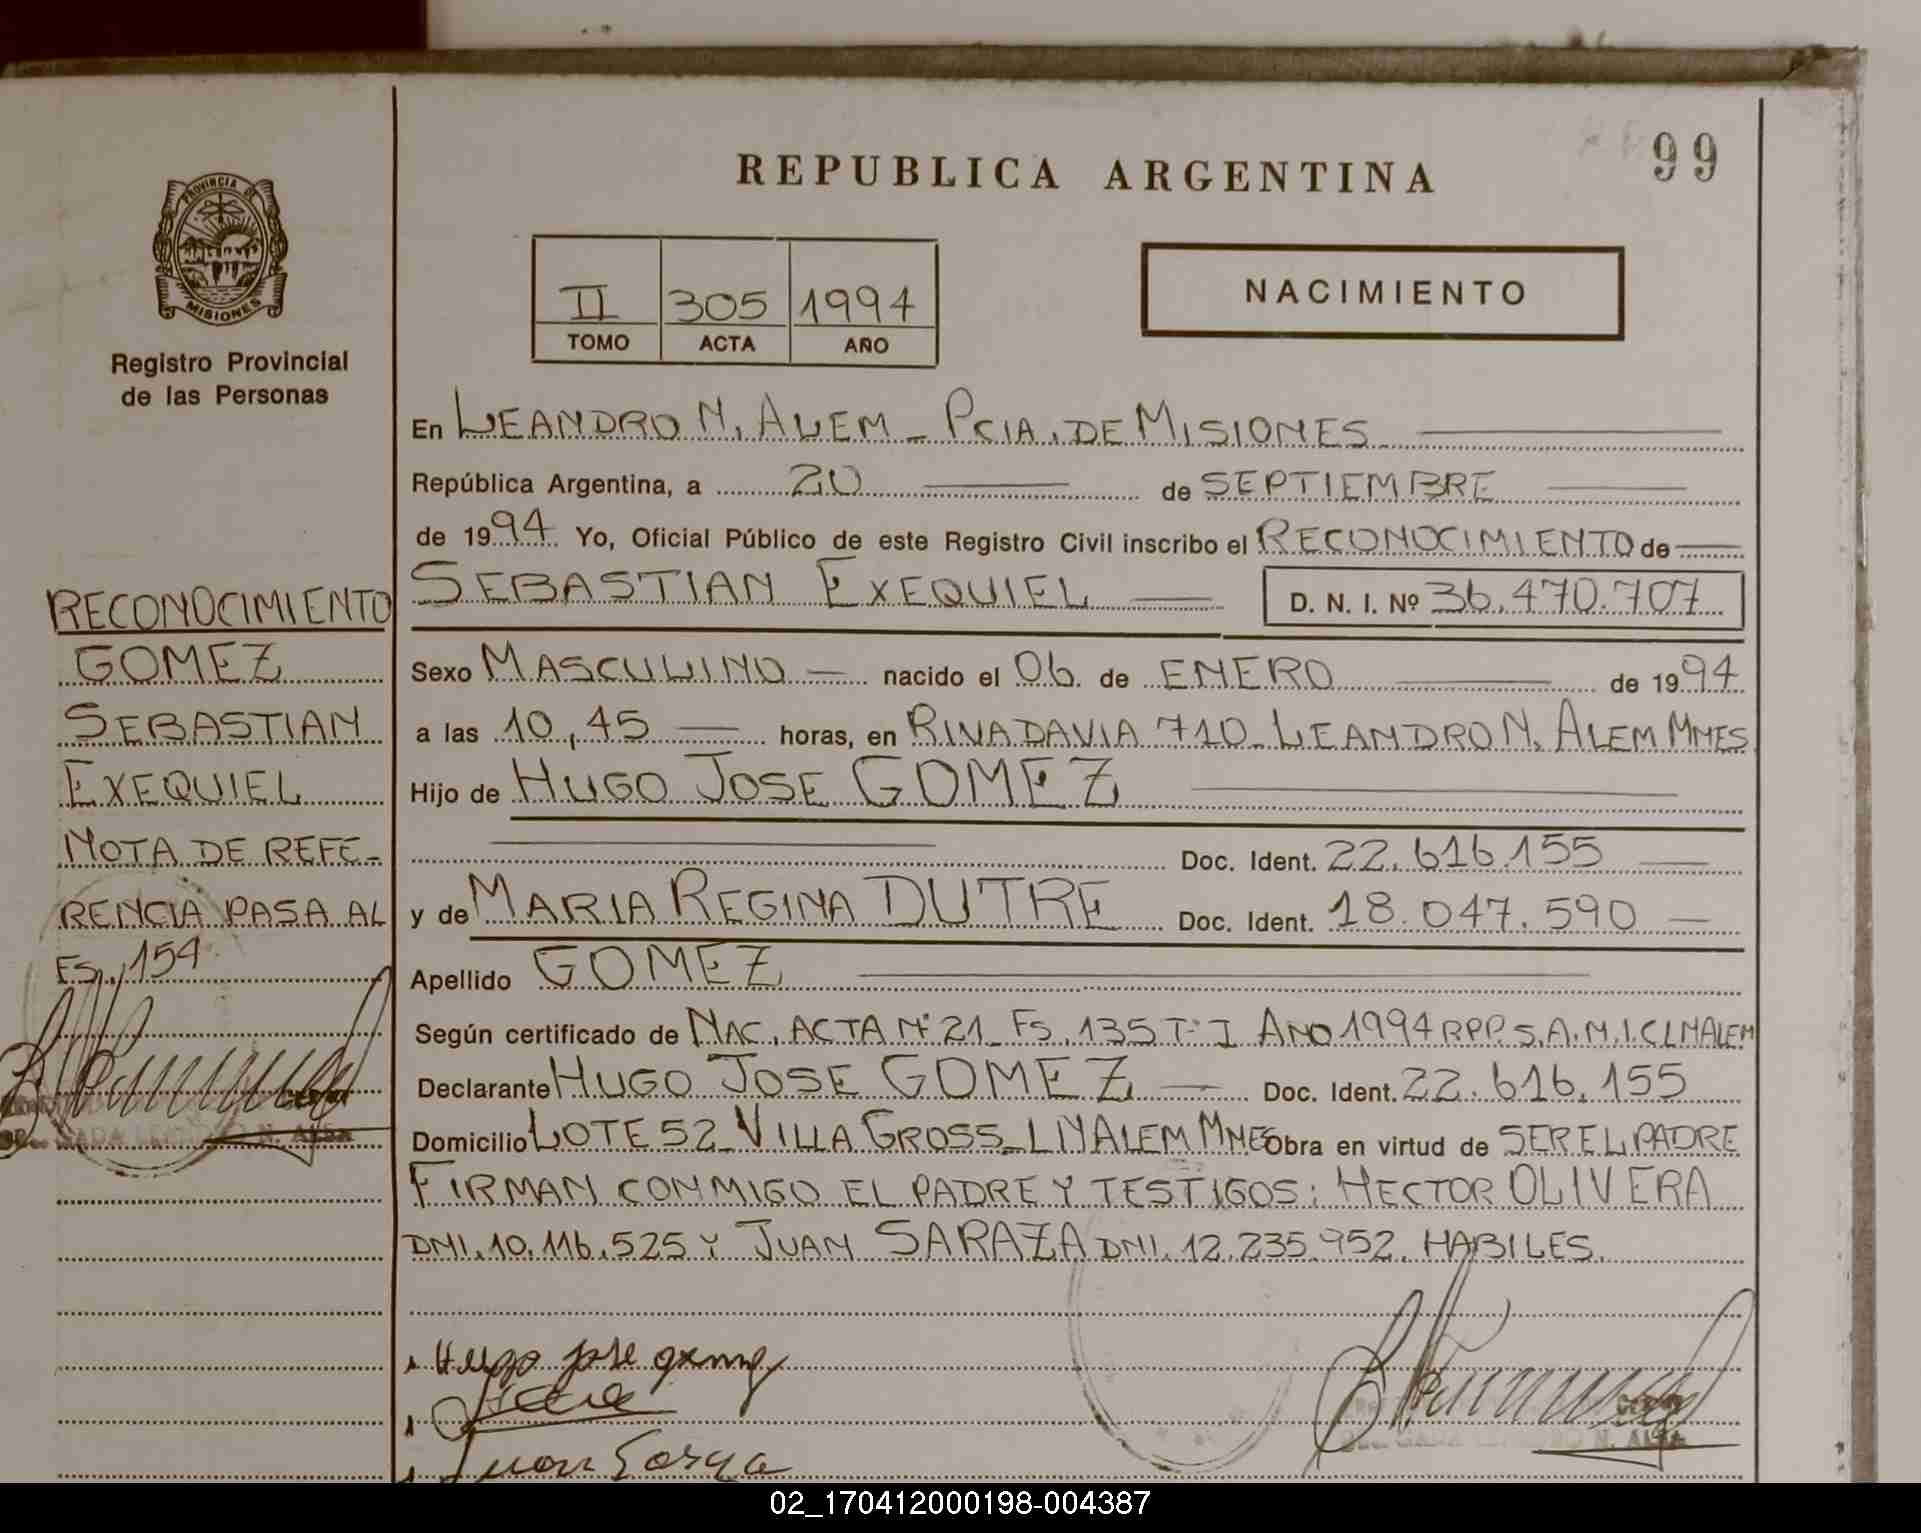 99
REPUBLICA ARGENTINA
PROVINCIA DE
MISIONES
Registro Provincial
de las Personas
II 305 1994
TOMO ACTA AÑO
NACIMIENTO
En LEANDRO N. ALEM - PCIA. DE MISIONES
República Argentina, a 20 de SEPTIEMBRE
de 1994 Yo, Oficial Público de este Registro Civil inscribo el RECONOCIMIENTO de
SEBASTIAN EXEQUIEL D. N. I. Nº 36.470.707
Sexo MASCULINO nacido el 06 de ENERO de 1994
a las 10,45 horas, en RIVADAVIA 710 - LEANDRO N. ALEM MNES
Hijo de HUGO JOSE GOMEZ
Doc. Ident. 22.616.155
y de MARIA REGINA DUTRE Doc. Ident. 18.047.590
Apellido GOMEZ
Según certificado de NAC. ACTA Nº 21 - FS. 135 Tº I AÑO 1994 RPP. S.A.M.I.C. LNALEM
Declarante HUGO JOSE GOMEZ Doc. Ident. 22.616.155
Domicilio LOTE 52 - VILLA GROSS - LNALEM MNES Obra en virtud de SER EL PADRE
FIRMAN CONMIGO EL PADRE Y TESTIGOS: HECTOR OLIVERA
DNI. 10.116.525 Y JUAN SARAZA DNI. 12.235.952. HABILES.
RECONOCIMIENTO
GOMEZ
SEBASTIAN
EXEQUIEL
NOTA DE REFE-
RENCIA PASA AL
FS. 154
Hugo jose gomez
Juan
02_170412000198-004387